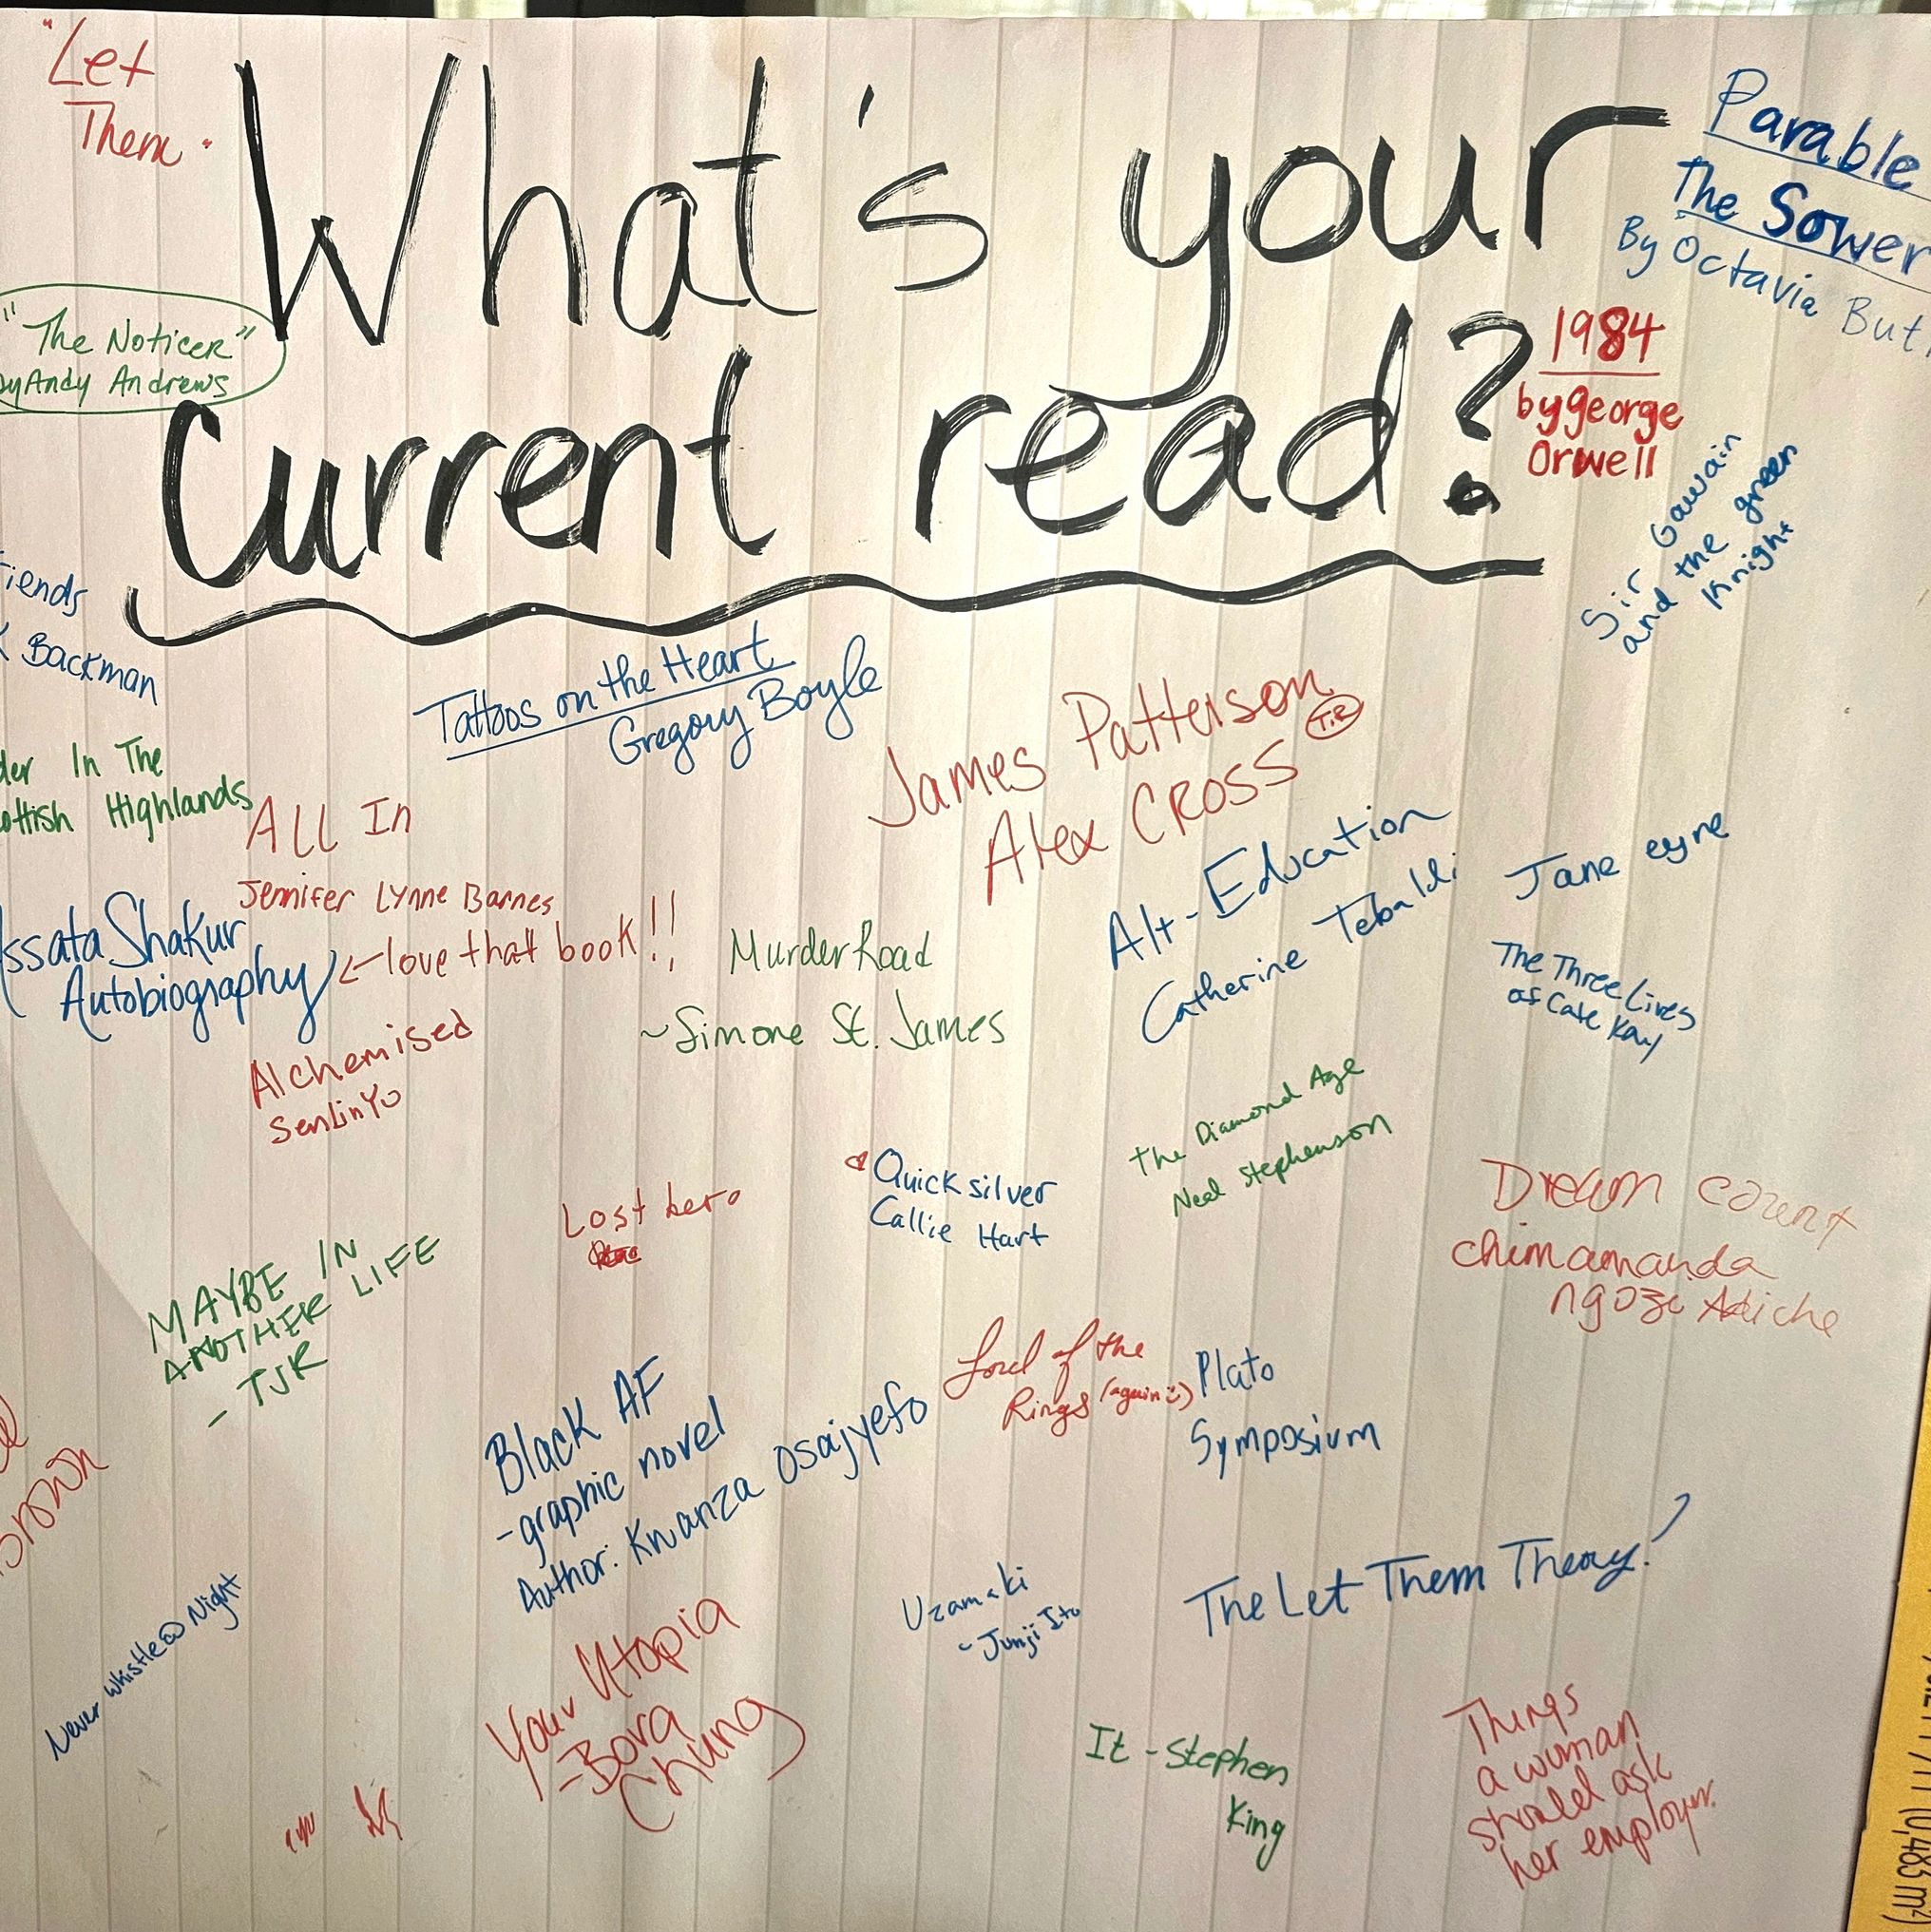 "Let
Them"
What's your
Current read?
Parable
The Sower
By Octavia But
"The Noticer"
by Andy Andrews
1984
by george
Orwell
Sir Gawain
and the green
Knight
iends
Backman
Tattoos on the Heart
Gregory Boyle
James Patterson
T.R
Alex CROSS
der In The
ottish Highlands
ALL In
Jennifer Lynne Barnes
Assata Shakur
Autobiography
←love that book!!
Murder Road
~Simone St. James
Alt-Education
Catherine Tebaldi
Jane eyre
The Three Lives
of Cate Kay
Alchemised
SenLinYu
The Diamond Age
Neal Stephenson
Quicksilver
Callie Hart
Lost hero
Dream count
chimamanda
ngozi Adiche
MAYBE IN
ANOTHER LIFE
- TJR
Lord of the
Rings (again :)
Plato
Symposium
Black AF
-graphic novel
Author: Kwanza Osajyefo
brown
Never whistle @ Night
Uzamaki
~ Junji Ito
The Let Them Theory!
Your Utopia
-Bora
Chung
It - Stephen
King
Things
a woman
should ask
her employer.
(0,483 m²)